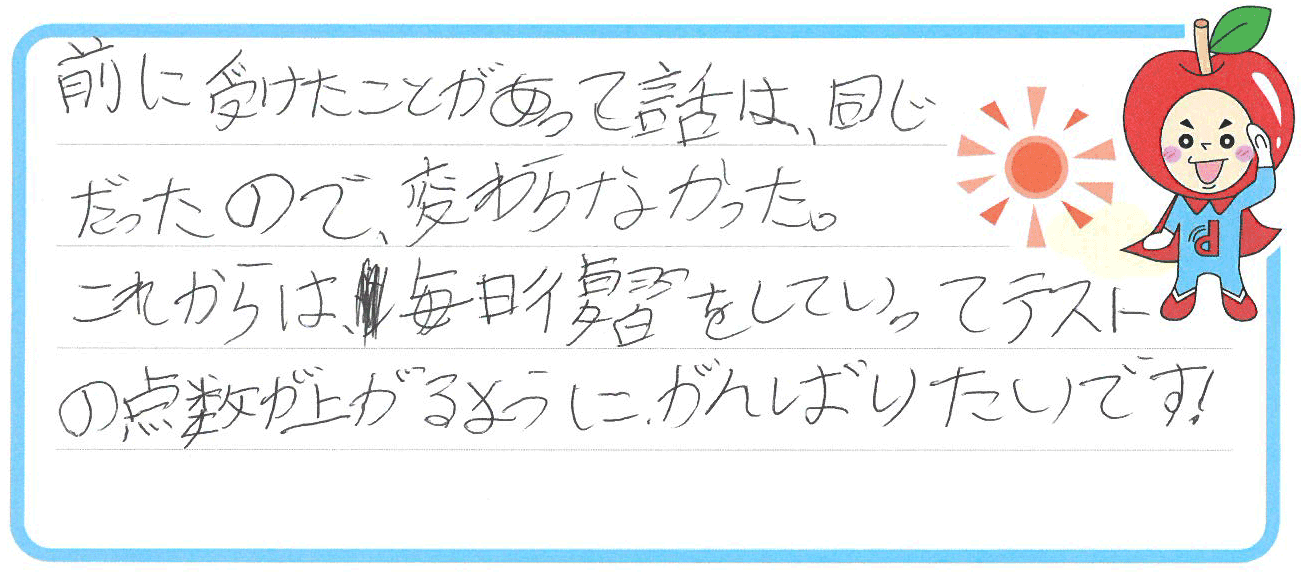 前に受けたことがあって話は、同じ
だったので、変わらなかった。
これからは、毎日復習をしていってテスト
の点数が上がるように、がんばりたいです!